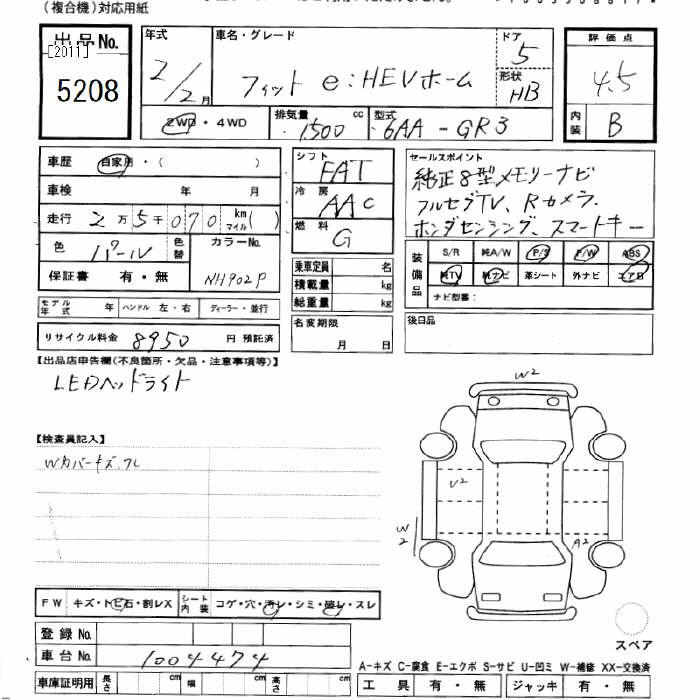 (複合機)対応用紙
出品No.
[2011]
5208
年式
2/2月
車名・グレード
フィット e:HEVホーム
ドア
5
形状
HB
評価点
4.5
内装
B
2WD・4WD
排気量
1500 cc
型式
6AA-GR3
車歴 自家用・( )
車検 年 月
走行 2万5千070 km マイル ( )
色 パール 色替
カラーNo.
NH902P
保証書 有・無
モデル年式 年 ハンドル 左・右 ディーラー・並行
リサイクル料金 8950 円 預託済
シフト
FAT
冷房
AAC
燃料
G
乗車定員 名
積載量 kg
総重量 kg
名変期限
月 日
セールスポイント
純正8型メモリーナビ
フルセグTV、Rカメラ.
ホンダセンシング、スマートキー
装備品
S/R 純A/W P/S P/W ABS
純TV 純ナビ 革シート 外ナビ エアB
ナビ型番:
後日品
【出品店申告欄(不良箇所・欠品・注意事項等)】
LEDヘッドライト
【検査員記入】
Wカバーキズ.
W2
U2
W2
A2
FW キズ・トビ石・割レX シート内装 コゲ・穴・汚レ・シミ・破レ・スレ
登録No.
車台No. 1004474
車庫証明用 長さ cm 幅 cm 高さ cm
スペア
A-キズ C-腐食 E-エクボ S-サビ U-凹ミ W-補修 XX-交換済
工具 有・無 ジャッキ 有・無